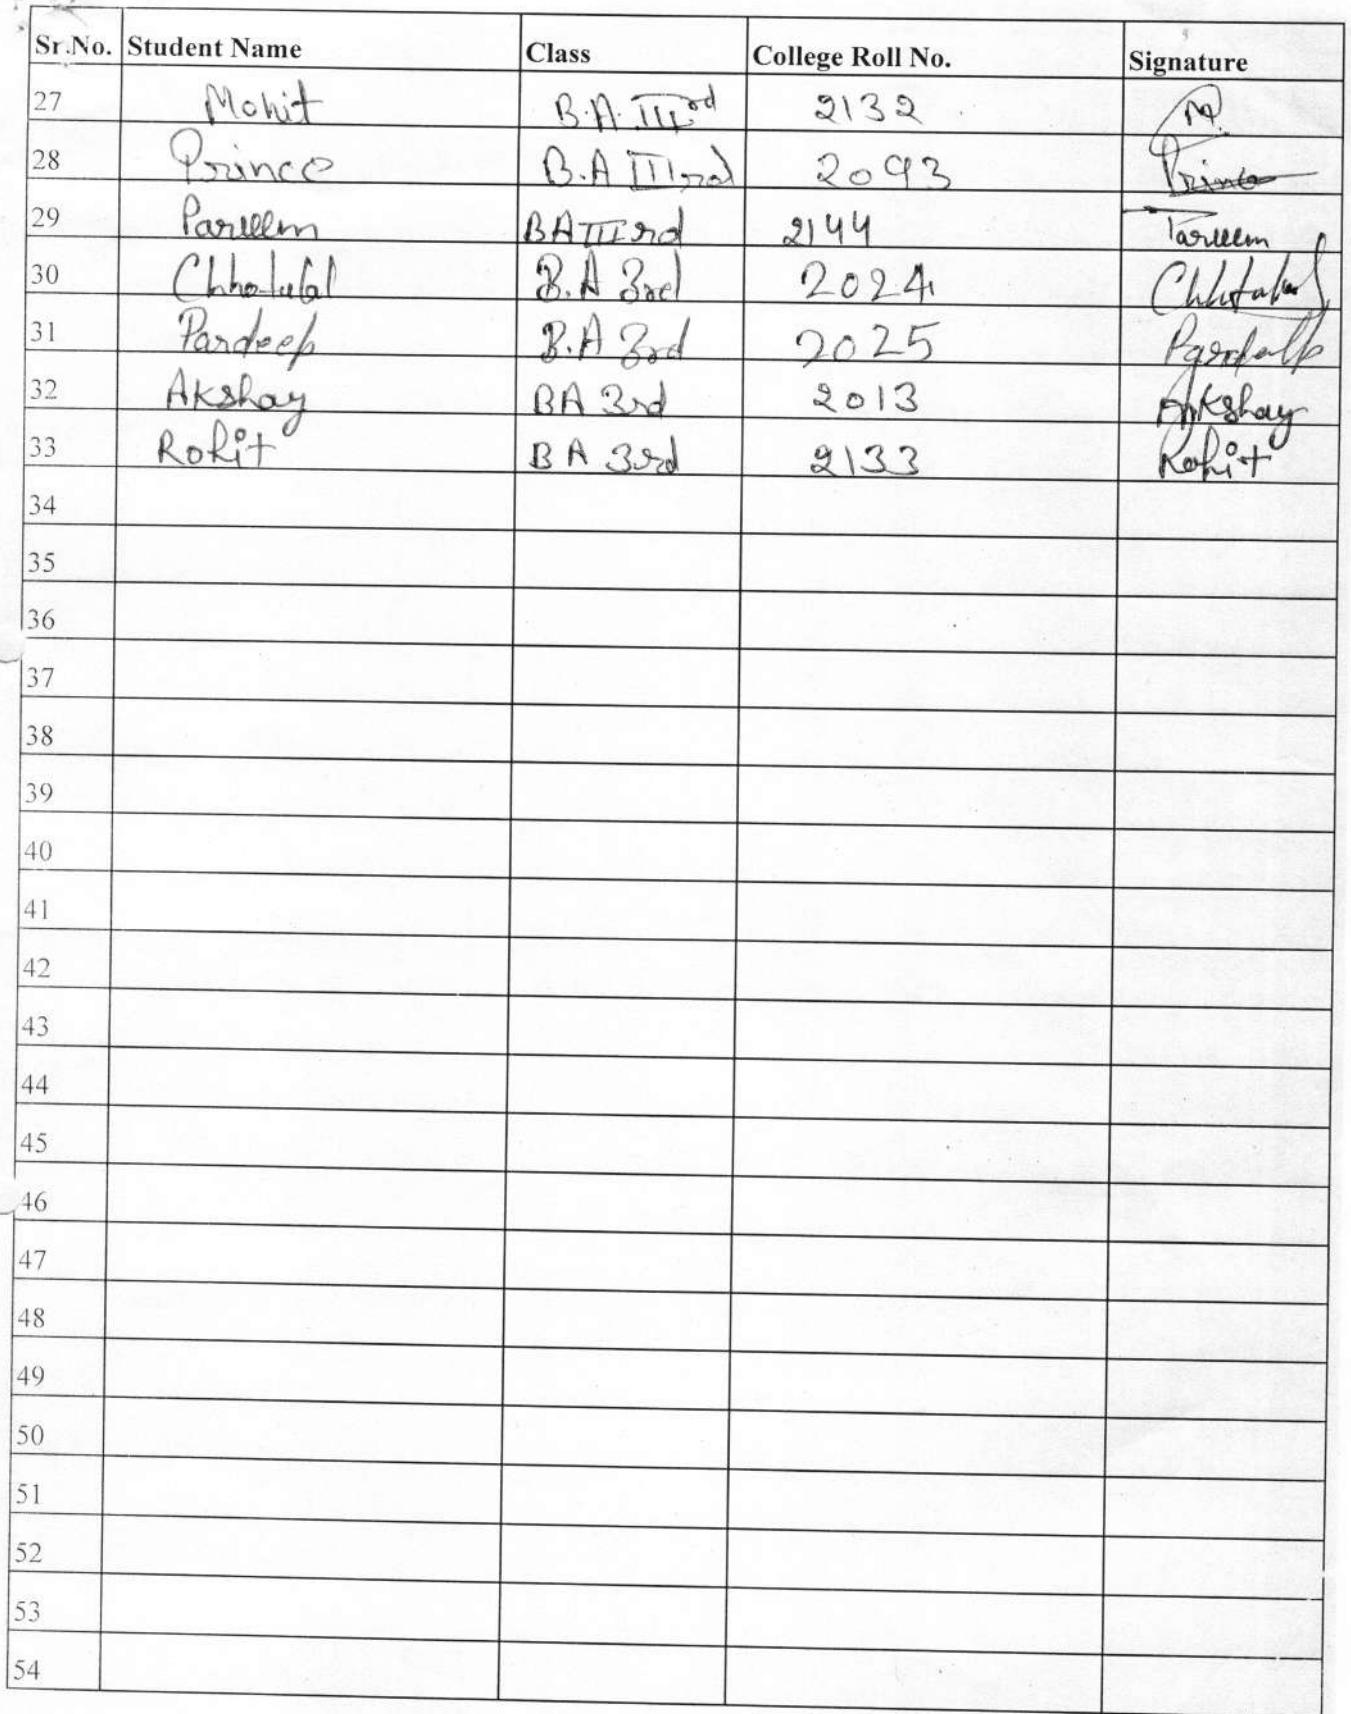 Sr.No. Student Name Class College Roll No. Signature
27 Mohit B.A. IIIrd 2132 M.
28 Prince B.A IIIrd 2093 Prince
29 Parveen BA IIIrd 2144
30 Chhotulal B.A 3rd 2024
31 Pardeep B.A 3rd 2025
32 Akshay BA 3rd 2013 Akshay
33 Rohit BA 3rd 2133 Rohit
34
35
36
37
38
39
40
41
42
43
44
45
46
47
48
49
50
51
52
53
54